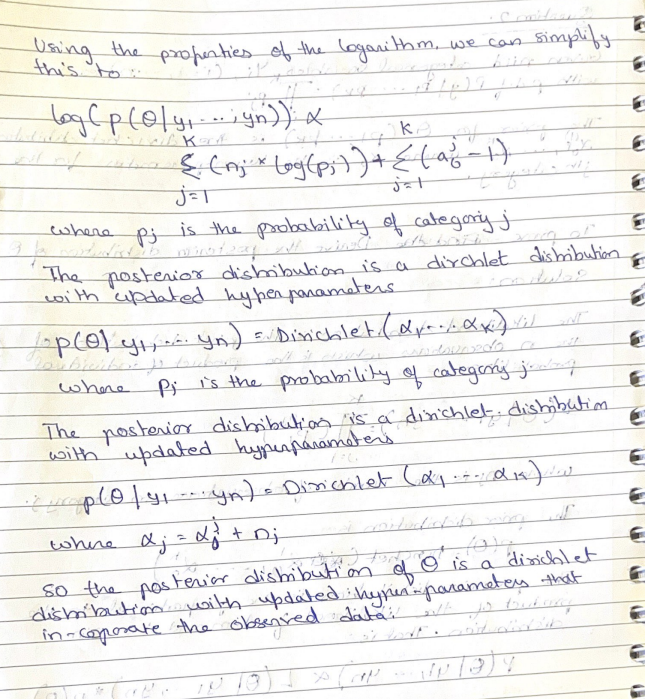 Using the properties of the logarithm, we can simplify
this to:
log(p(θ|y1 ... , yn)) ∝
K K
Σ (nj * log(pj)) + Σ (α₀ʲ - 1)
j=1 j=1
where pj is the probability of category j
The posterior distribution is a dirchlet distribution
with updated hyperparameters
p(θ| y1, ... yn) = Dirichlet (α1 ... αK)
where Pj is the probability of category j.
The posterior distribution is a dirichlet distribution
with updated hyperparameters
p(θ | y1 ... yn) = Dirichlet (α1 ... αK)
where αj = α₀ʲ + nj
so the posterior distribution of θ is a dirichlet
distribution with updated hyper-parameters that
in-coporate the observed data.